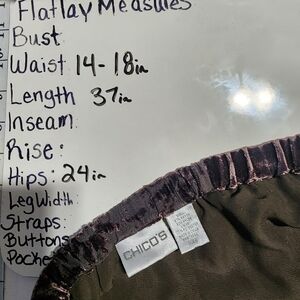 Flatlay Measures
Bust
Waist 14-18in
Length 37in
Inseam:
Rise:
Hips: 24in
Leg Width:
Straps:
Buttons
Pocke
CHICO'S